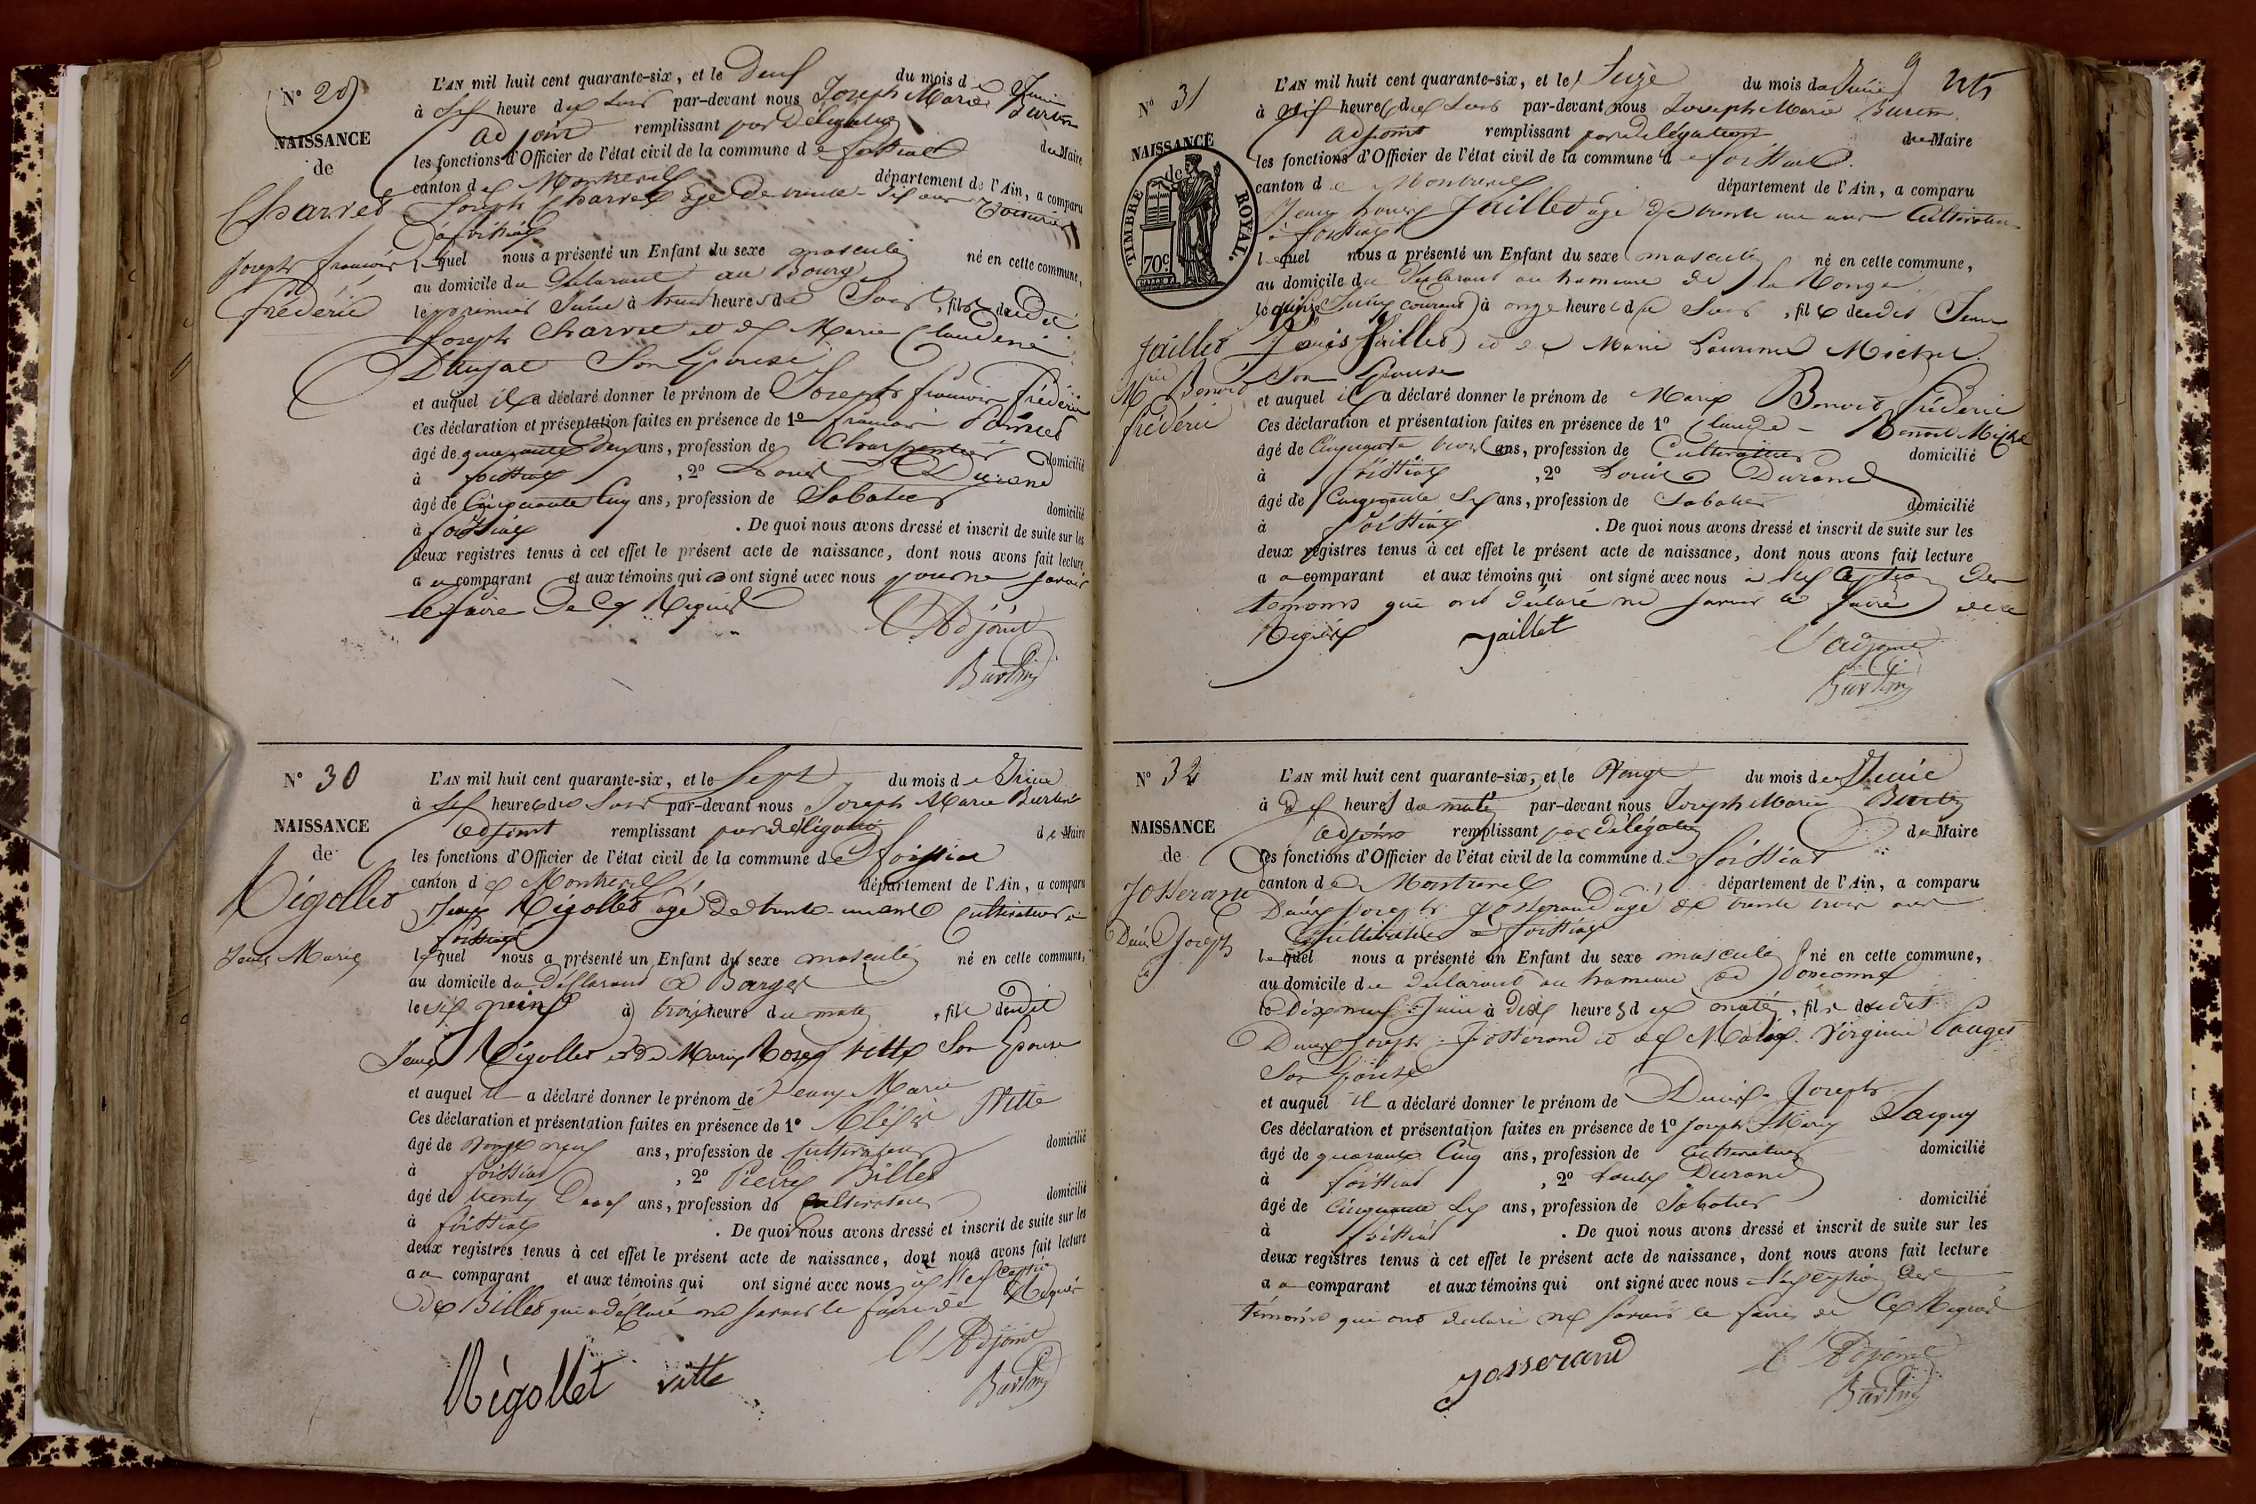 N° 29
NAISSANCE
de
Charvet
Joseph françois
fréderic
L'AN mil huit cent quarante-six, et le Deux du mois de Juin
à Six heure du Soir par-devant nous Joseph Marie Burtin
adjoint remplissant par Délégation du Maire
les fonctions d'Officier de l'état civil de la commune de foissiat
canton de Montrevel département de l'Ain, a comparu
Joseph Charvet âgé de trente-six ans
à foissiat
lequel nous a présenté un Enfant du sexe masculin né en cette commune,
au domicile du Déclarant au Bourg
le premier Juin à heures du Soir, fils dudit
Joseph Charvet et de Marie Claudine
Son Epouse
et auquel il a déclaré donner le prénom de Joseph françois fréderic
Ces déclaration et présentation faites en présence de 1° françois
âgé de quarante Deux ans, profession de Charpentier domicilié
à foissiat, 2° Louis Durand
âgé de Cinquante Cinq ans, profession de Sabotier domicilié
à foissiat. De quoi nous avons dressé et inscrit de suite sur les
deux registres tenus à cet effet le présent acte de naissance, dont nous avons fait lecture
au comparant et aux témoins qui ont signé avec nous pour ne savoir
le faire De ce Requis
L'Adjoint
Burtin
N° 30
NAISSANCE
de
Rigollet
Jean Marie
L'AN mil huit cent quarante-six, et le Sept du mois de Juin
à Six heure du Soir par-devant nous Joseph Marie Burtin
adjoint remplissant par délégation du Maire
les fonctions d'Officier de l'état civil de la commune de foissiat
canton de Montrevel département de l'Ain, a comparu
Jean Rigollet âgé de trente-un ans Cultivateur à
foissiat
lequel nous a présenté un Enfant du sexe masculin né en cette commune,
au domicile du Déclarant
le six à trois heure du matin, fils dudit
Jean Rigollet et de Marie Rose Vitte Son Epouse
et auquel il a déclaré donner le prénom de Jean Marie
Ces déclaration et présentation faites en présence de 1° Vitte
âgé de Vingt neuf ans, profession de Cultivateur domicilié
à foissiat, 2° Pierre Billet
âgé de trente Deux ans, profession de Cultivateur domicilié
à foissiat. De quoi nous avons dressé et inscrit de suite sur les
deux registres tenus à cet effet le présent acte de naissance, dont nous avons fait lecture
au comparant et aux témoins qui ont signé avec nous à l'exception
de Billet qui a déclaré ne savoir le faire de Requis
Rigollet vitte
L'Adjoint
Burtin
N° 31
NAISSANCE
de
TIMBRE ROYAL.
70c
Jaillet
Mrie Benoit
fréderic
L'AN mil huit cent quarante-six, et le Seize du mois de Juin
à Six heures du Soir par-devant nous Joseph Marie Burtin
adjoint remplissant par délégation du Maire
les fonctions d'Officier de l'état civil de la commune de foissiat
canton de Montrevel département de l'Ain, a comparu
Jean Louis Jaillet âgé de trente un ans Cultivateur
à foissiat
lequel nous a présenté un Enfant du sexe masculin né en cette commune,
au domicile du Déclarant au hameau de la
le quinze Juin courant à onze heure du Soir, fils dudit Jean
Louis Jaillet et de Marie Laurence Michel
Son Epouse
et auquel il a déclaré donner le prénom de Marie Benoit fréderic
Ces déclaration et présentation faites en présence de 1° Claude Benoit Michel
âgé de Cinquante trois ans, profession de Cultivateur domicilié
à foissiat, 2° Louis Durand
âgé de Cinquante Six ans, profession de Sabotier domicilié
à foissiat. De quoi nous avons dressé et inscrit de suite sur les
deux registres tenus à cet effet le présent acte de naissance, dont nous avons fait lecture
au comparant et aux témoins qui ont signé avec nous à l'exception des
témoins qui ont déclaré ne savoir le faire de ce
Requis
Jaillet
L'adjoint
Burtin
N° 32
NAISSANCE
de
Josserand
Denis Joseph
L'AN mil huit cent quarante-six, et le Vingt du mois de Juin
à Dix heures du matin par-devant nous Joseph Marie Burtin
adjoint remplissant par délégation du Maire
les fonctions d'Officier de l'état civil de la commune de foissiat
canton de Montrevel département de l'Ain, a comparu
Denis Joseph Josserand âgé de trente trois ans
Cultivateur à foissiat
lequel nous a présenté un Enfant du sexe masculin né en cette commune,
au domicile du déclarant au hameau de
le Dix neuf Juin à Dix heures du matin, fils dudit
Denis Joseph Josserand et de Marie Virginie
Son Epouse
et auquel il a déclaré donner le prénom de Denis Joseph
Ces déclaration et présentation faites en présence de 1° Joseph Marie
âgé de quarante Cinq ans, profession de Cultivateur domicilié
à foissiat, 2° Louis Durand
âgé de Cinquante Six ans, profession de Sabotier domicilié
à foissiat. De quoi nous avons dressé et inscrit de suite sur les
deux registres tenus à cet effet le présent acte de naissance, dont nous avons fait lecture
au comparant et aux témoins qui ont signé avec nous l'exception des
témoins qui ont déclaré ne savoir le faire de Ce Requis
Josserand
L'Adjoint
Burtin